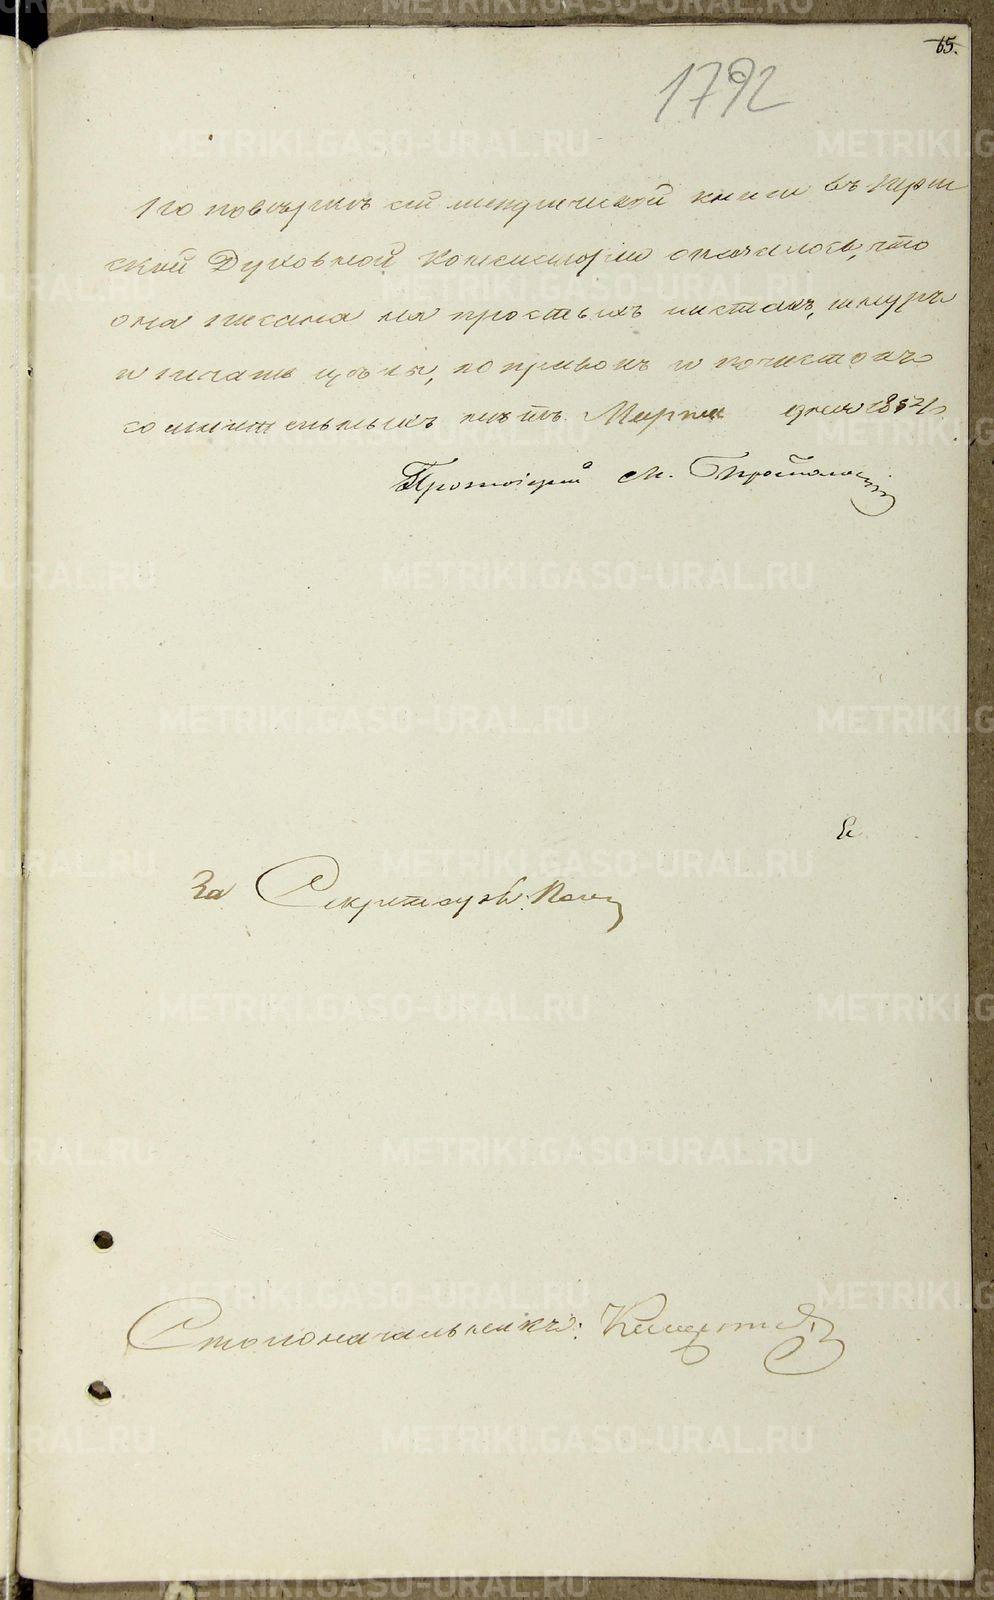 65.
1792
По поверкѣ сей метрической книги въ Перм
ской Духовной Консисторіи оказалось, что
она писана на простыхъ листахъ, шнуръ
и печать цѣлы, поправокъ и почистокъ
сомнительныхъ нѣтъ. Марта дня 1852
Протоіерей М.
За Секретаря
Столоначальникъ:
METRIKI.GASO-URAL.RU